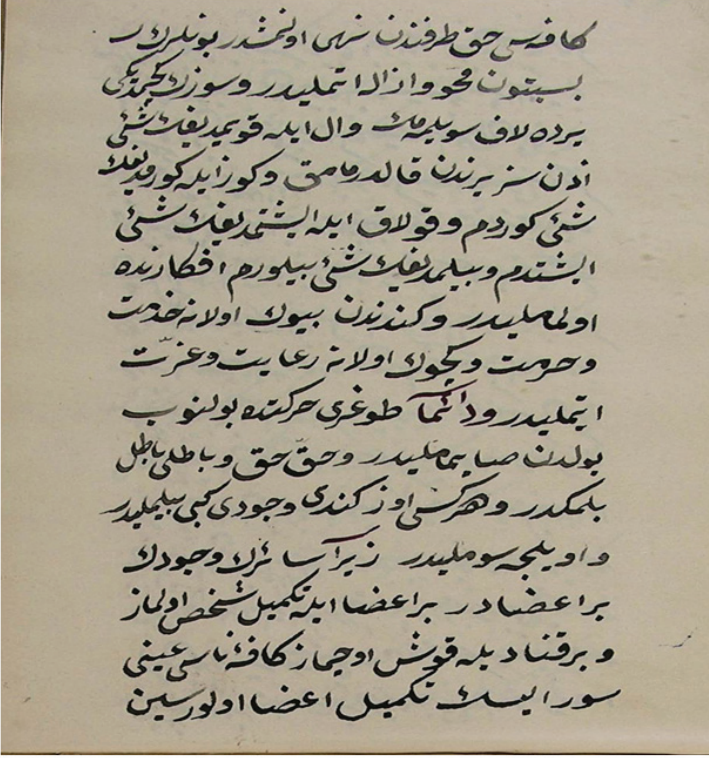 كافه‌سى حق طرفندن نهى اولنمشدر بونلرك
بسبتون محو و ازاله اتمليدر و سوزك كچمديكى
يرده لاف سويلمه‌مك و ال ايله قويمديغك شئى
اذن سز يرندن قالدرمامق و كوز ايله كورمديغك
شئى كوردم و قولاق ايله ايشتمديغك شئى
ايشتدم و بيلمديغك شئى بيلورم افكارنده
اولمامليدر و كندندن بيوك اولانه خدمت
و حرمت و كچوك اولانه رعايت و عزّت
ايتمليدر و دائمآ طوغرى حركتده بولنوب
يولدن صاپمامليدر و حقّ حق و باطلى باطل
بلمكدر و هركسى اوز كندى وجودى كبى بيلمليدر
و اويلجه سومليدر زيرآ سائرك وجودك
بر اعضادر بر اعضا ايله تكميل شخص اولماز
و بر قناديله قوش اوچماز كافهٔ ناسى عينى
سور ايسك تكميل اعضا اولورسين